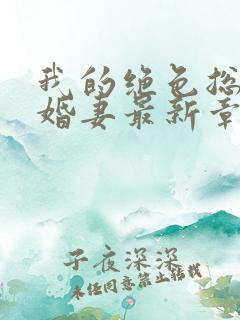 我的绝色总
婚妻最新章
子夜深深
未经同意禁止转载